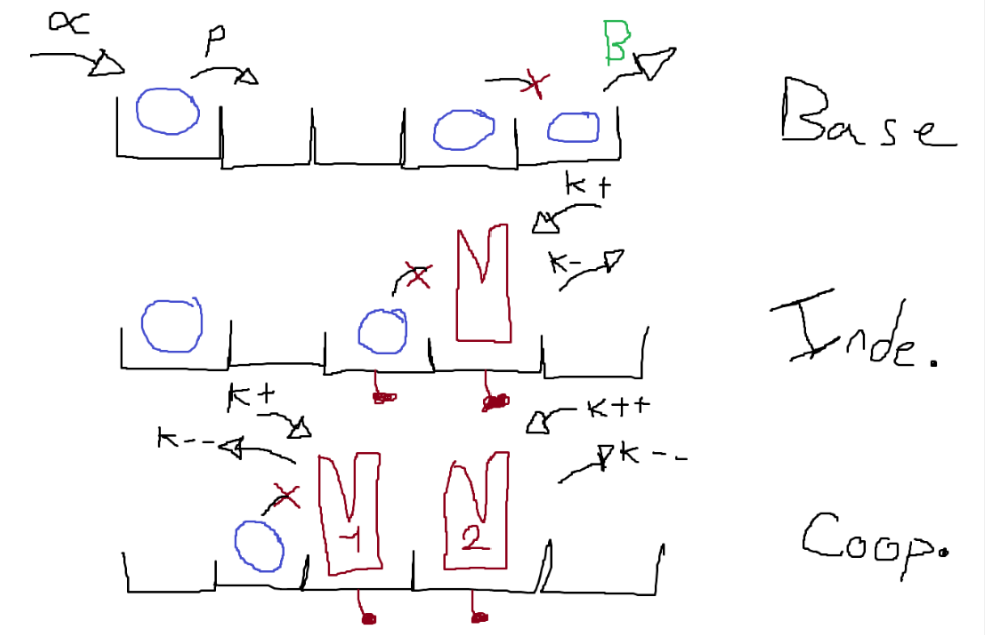 α
P
B
Base
K+
K-
Inde.
K+
K++
K--
K--
1
2
Coop.